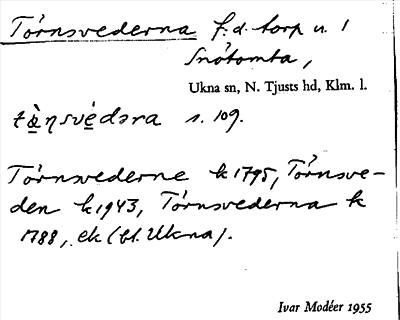 Törnsvederna f.d. torp u. 1
Snötomta,
Ukna sn, N. Tjusts hd, Klm. l.
tä̀ŋsvédəra s. 109.
Törnsvederne k 1795, Törnsve-
den k 1943, Törnsvederna k
1788, ek (bl. Ukna).
Ivar Modéer 1955